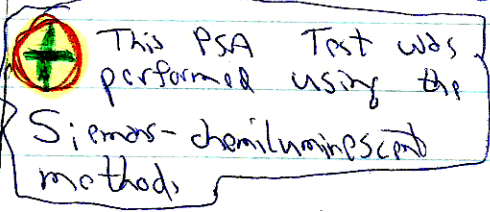 This PSA Test was
performed using the
Siemens-chemiluminescent
method.